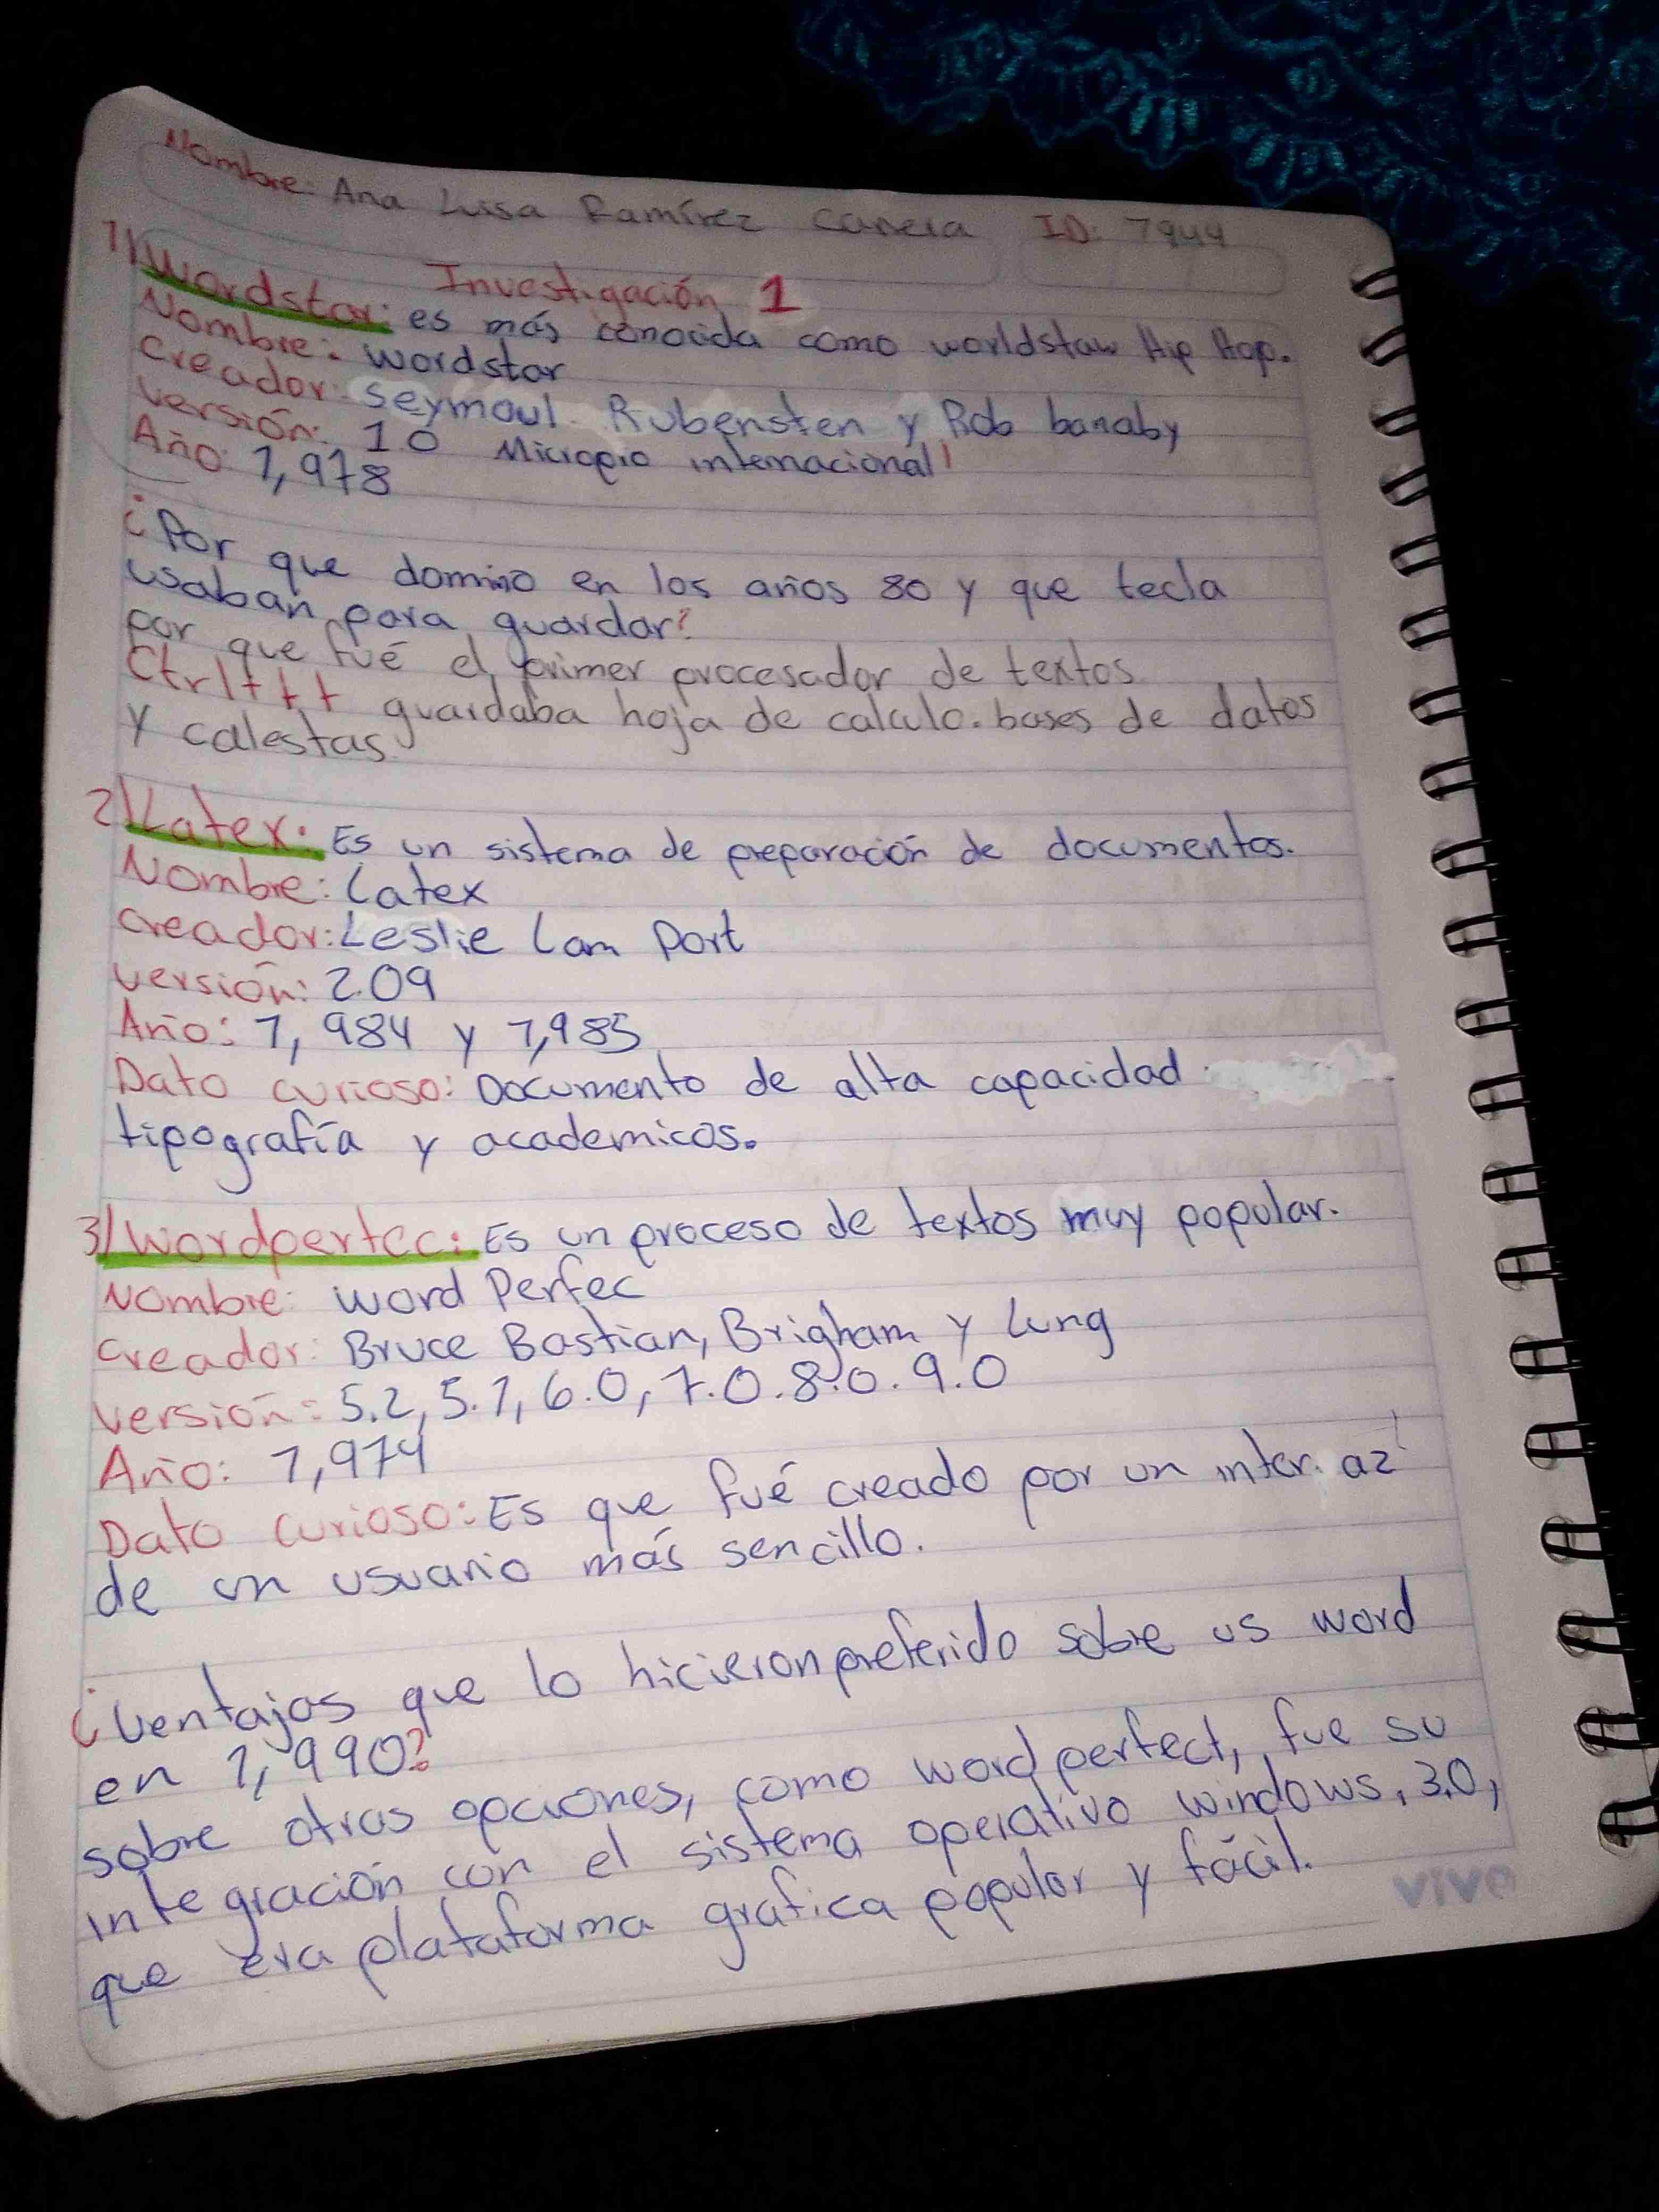 Nombre: Ana Luisa Ramírez Canela ID: 7944
Investigación 1
1) Wordstar: es más conocida como worldstaw Hip Hop.
Nombre: wordstar
Creador: Seymoul Rubensten y Rob banaby
Versión: 1.0 Micropio internacional
Año 1,978
¿Por que domino en los años 80 y que tecla
usaban para guardar?
por que fué el primer procesador de textos
Ctrl+++ guardaba hoja de calculo. bases de datos
y calestas.
2) Latex: Es un sistema de preparación de documentos.
Nombre: Latex
creador: Leslie Lam Port
versión: 2.09
Año: 1,984 y 1,985
Dato curioso: Documento de alta capacidad
tipografía y academicos.
3) Wordpertec: Es un proceso de textos muy popular.
Nombre: word Perfec
creador: Bruce Bastian, Brigham y Lung
versión: 5.2, 5.1, 6.0, 7.0. 8.0. 9.0
Año: 1,974
Dato curioso: Es que fué creado por un inter az
de un usuario más sencillo.
¿Ventajas que lo hicieron preferido sobre us word
en 1,990?
sobre otras opciones, como word perfect, fue su
integración con el sistema operativo windows, 3.0,
que era plataforma grafica popular y fácil.
vivo